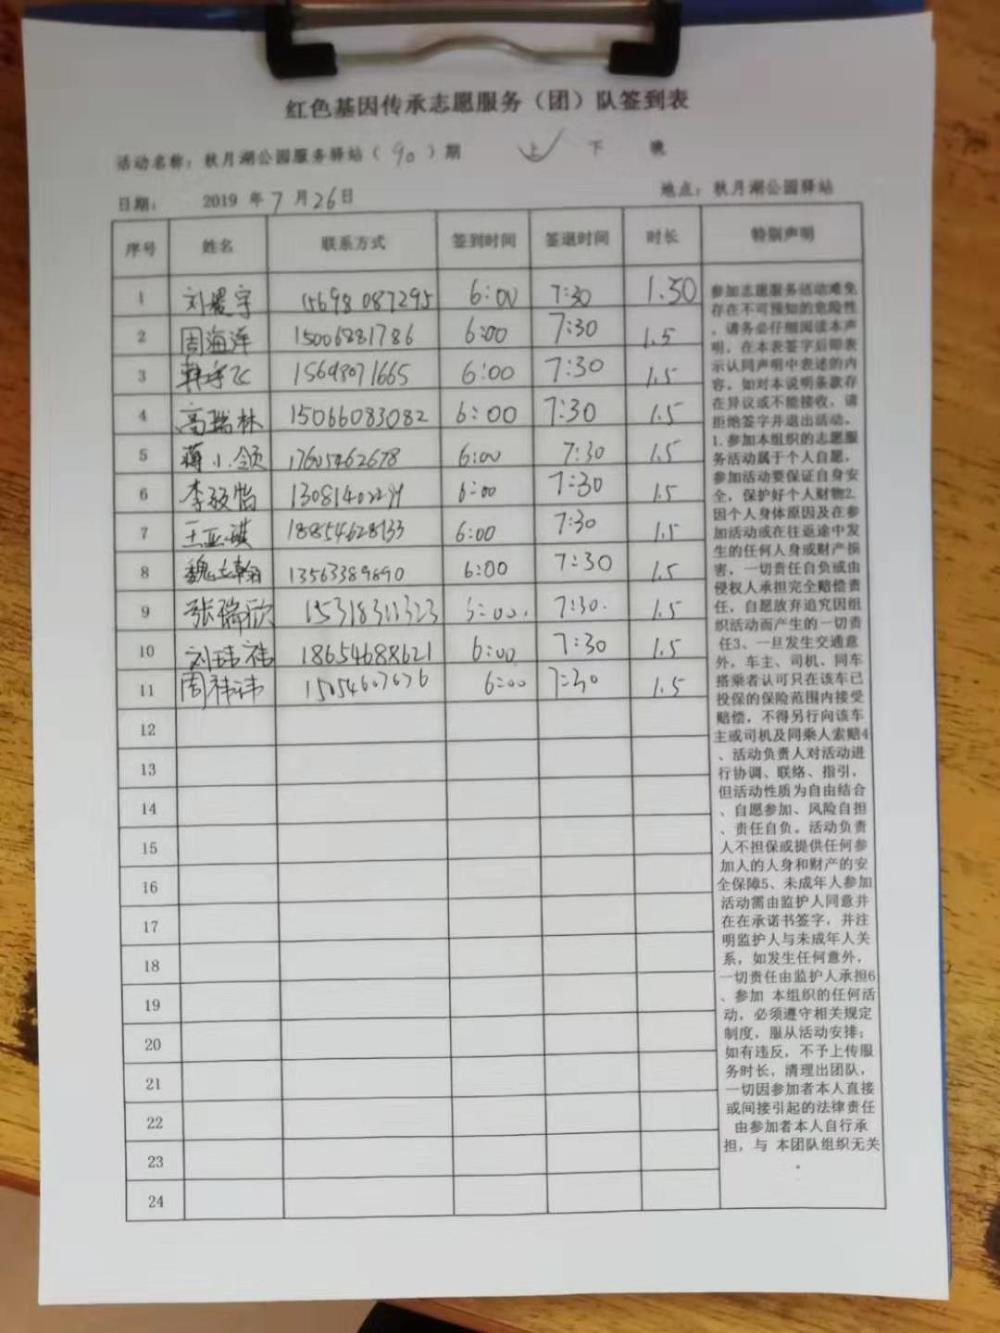 红色基因传承志愿服务（团）队签到表
活动名称：秋月湖公园服务驿站（90）期 上 下 晚
日期： 2019 年 7 月 26日 地点：秋月湖公园驿站
序号 姓名 联系方式 签到时间 签退时间 时长 特别声明
1 刘宇 15698087295 6:00 7:30 1.30
2 周海洋 15006881786 6:00 7:30 1.5
3 15698071665 6:00 7:30 1.5
4 高瑞林 15066083082 6:00 7:30 1.5
5 蒋小领 17605462678 6:00 7:30 1.5
6 李毅怡 6:00 7:30 1.5
7 王亚琪 18854628133 6:00 7:30 1.5
8 魏 13563389890 6:00 7:30 1.5
9 张瑞欣 15318311323 7:30. 1.5
10 刘玮祎 18654688621 6:00 7:30 1.5
11 周祎玮 6:00 7:30 1.5
12
13
14
15
16
17
18
19
20
21
22
23
24
参加志愿服务活动难免
存在不可预知的危险性
，请务必仔细阅读本声
明，在本表签字后即表
示认同声明中表述的内
容。如对本说明条款存
在异议或不能接收，请
拒绝签字并退出活动。
1.参加本组织的志愿服
务活动属于个人自愿，
参加活动要保证自身安
全，保护好个人财物2.
因个人身体原因及在参
加活动或在往返途中发
生的任何人身或财产损
害，一切责任自负或由
侵权人承担完全赔偿责
任，自愿放弃追究因组
织活动而产生的一切责
任3、一旦发生交通意
外，车主、司机、同车
搭乘者认可只在该车已
投保的保险范围内接受
赔偿，不得另行向该车
主或司机及同乘人索赔4
、活动负责人对活动进
行协调、联络、指引，
但活动性质为自由结合
、自愿参加、风险自担
、责任自负。活动负责
人不担保或提供任何参
加人的人身和财产的安
全保障5、未成年人参加
活动需由监护人同意并
在在承诺书签字，并注
明监护人与未成年人关
系，如发生任何意外，
一切责任由监护人承担6
、参加 本组织的任何活
动，必须遵守相关规定
制度，服从活动安排；
如有违反，不予上传服
务时长，清理出团队，
一切因参加者本人直接
或间接引起的法律责任
由参加者本人自行承
担，与 本团队组织无关
。